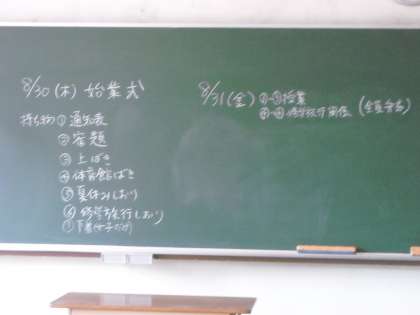 8/30(木) 始業式
持ち物①通知表
②宿題
③上ばき
④体育館ばき
⑤夏休みしおり
⑥修学旅行しおり
⑦下着(女子だけ)
8/31(金) ①-③授業
④-⑥修学旅行関係 (全員弁当)